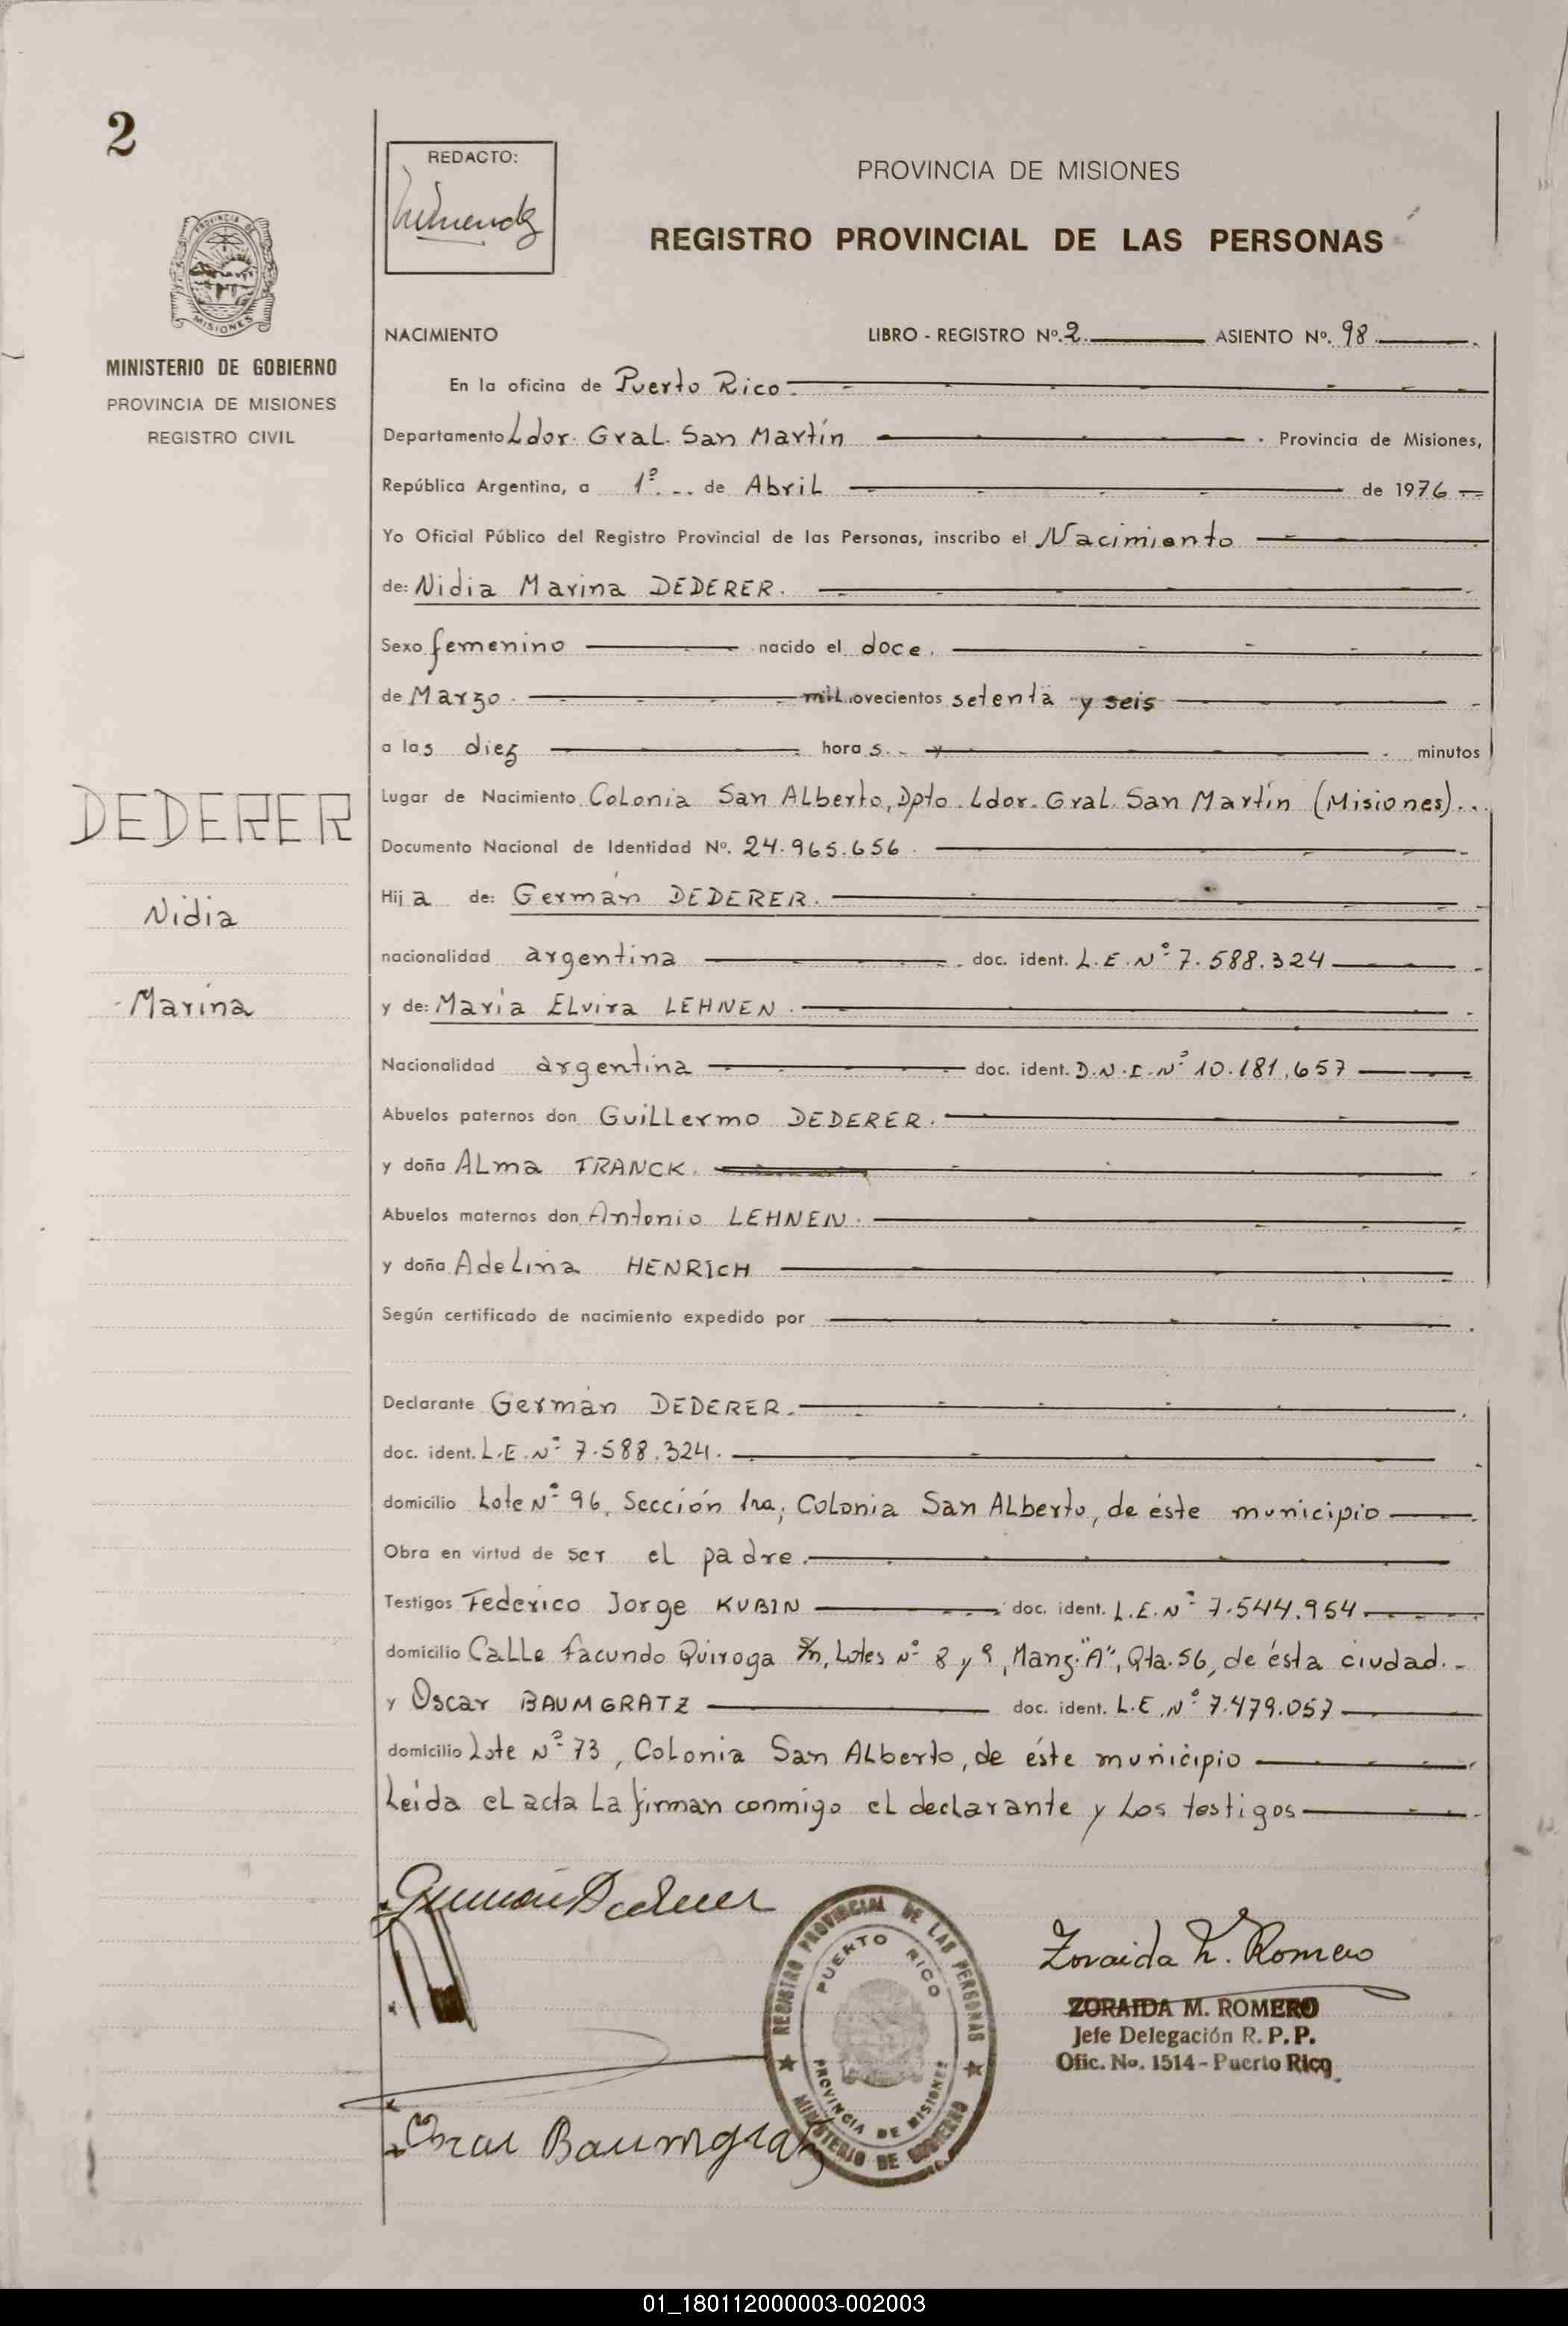 2
REDACTO:
PROVINCIA DE MISIONES
REGISTRO PROVINCIAL DE LAS PERSONAS
MISIONES
MINISTERIO DE GOBIERNO
PROVINCIA DE MISIONES
REGISTRO CIVIL
NACIMIENTO LIBRO - REGISTRO Nº. 2. ASIENTO Nº. 98.
En la oficina de Puerto Rico.
Departamento Ldor. Gral. San Martín . Provincia de Misiones,
República Argentina, a 1º. de Abril de 1976
Yo Oficial Público del Registro Provincial de las Personas, inscribo el Nacimiento
de: Nidia Marina DEDERER.
Sexo femenino nacido el doce.
de Marzo. mil novecientos setenta y seis
a las diez horas. y minutos
DEDERER
Nidia
Marina
Lugar de Nacimiento Colonia San Alberto, Dpto. Ldor. Gral. San Martín (Misiones)..
Documento Nacional de Identidad Nº. 24.965.656.
Hija de: Germán DEDERER.
nacionalidad argentina doc. ident. L.E. Nº 7.588.324
y de: María Elvira LEHNEN.
Nacionalidad argentina doc. ident. D.N.I. Nº 10.181.657
Abuelos paternos don Guillermo DEDERER.
y doña Alma TRANCK.
Abuelos maternos don Antonio LEHNEN.
y doña Adelina HENRICH
Según certificado de nacimiento expedido por
Declarante Germán DEDERER.
doc. ident. L.E. Nº 7.588.324.
domicilio Lote Nº 96, Sección 1ra, Colonia San Alberto, de éste municipio
Obra en virtud de ser el padre.
Testigos Federico Jorge KUBIN doc. ident. L.E. Nº 7.544.954
domicilio Calle Facundo Quiroga s/n, Lotes Nº 8 y 9, Manz. "A", Qta. 56, de ésta ciudad.-
y Oscar BAUMGRATZ doc. ident. L.E. Nº 7.479.057
domicilio Lote Nº 73, Colonia San Alberto, de éste municipio
Leída el acta la firman conmigo el declarante y los testigos
German Dederer
REGISTRO PROVINCIAL DE LAS PERSONAS
PUERTO RICO
PROVINCIA DE MISIONES
MINISTERIO DE GOBIERNO
Zoraida M. Romero
ZORAIDA M. ROMERO
Jefe Delegación R. P. P.
Ofic. No. 1514 - Puerto Rico
Oscar Baumgratz
01_180112000003-002003